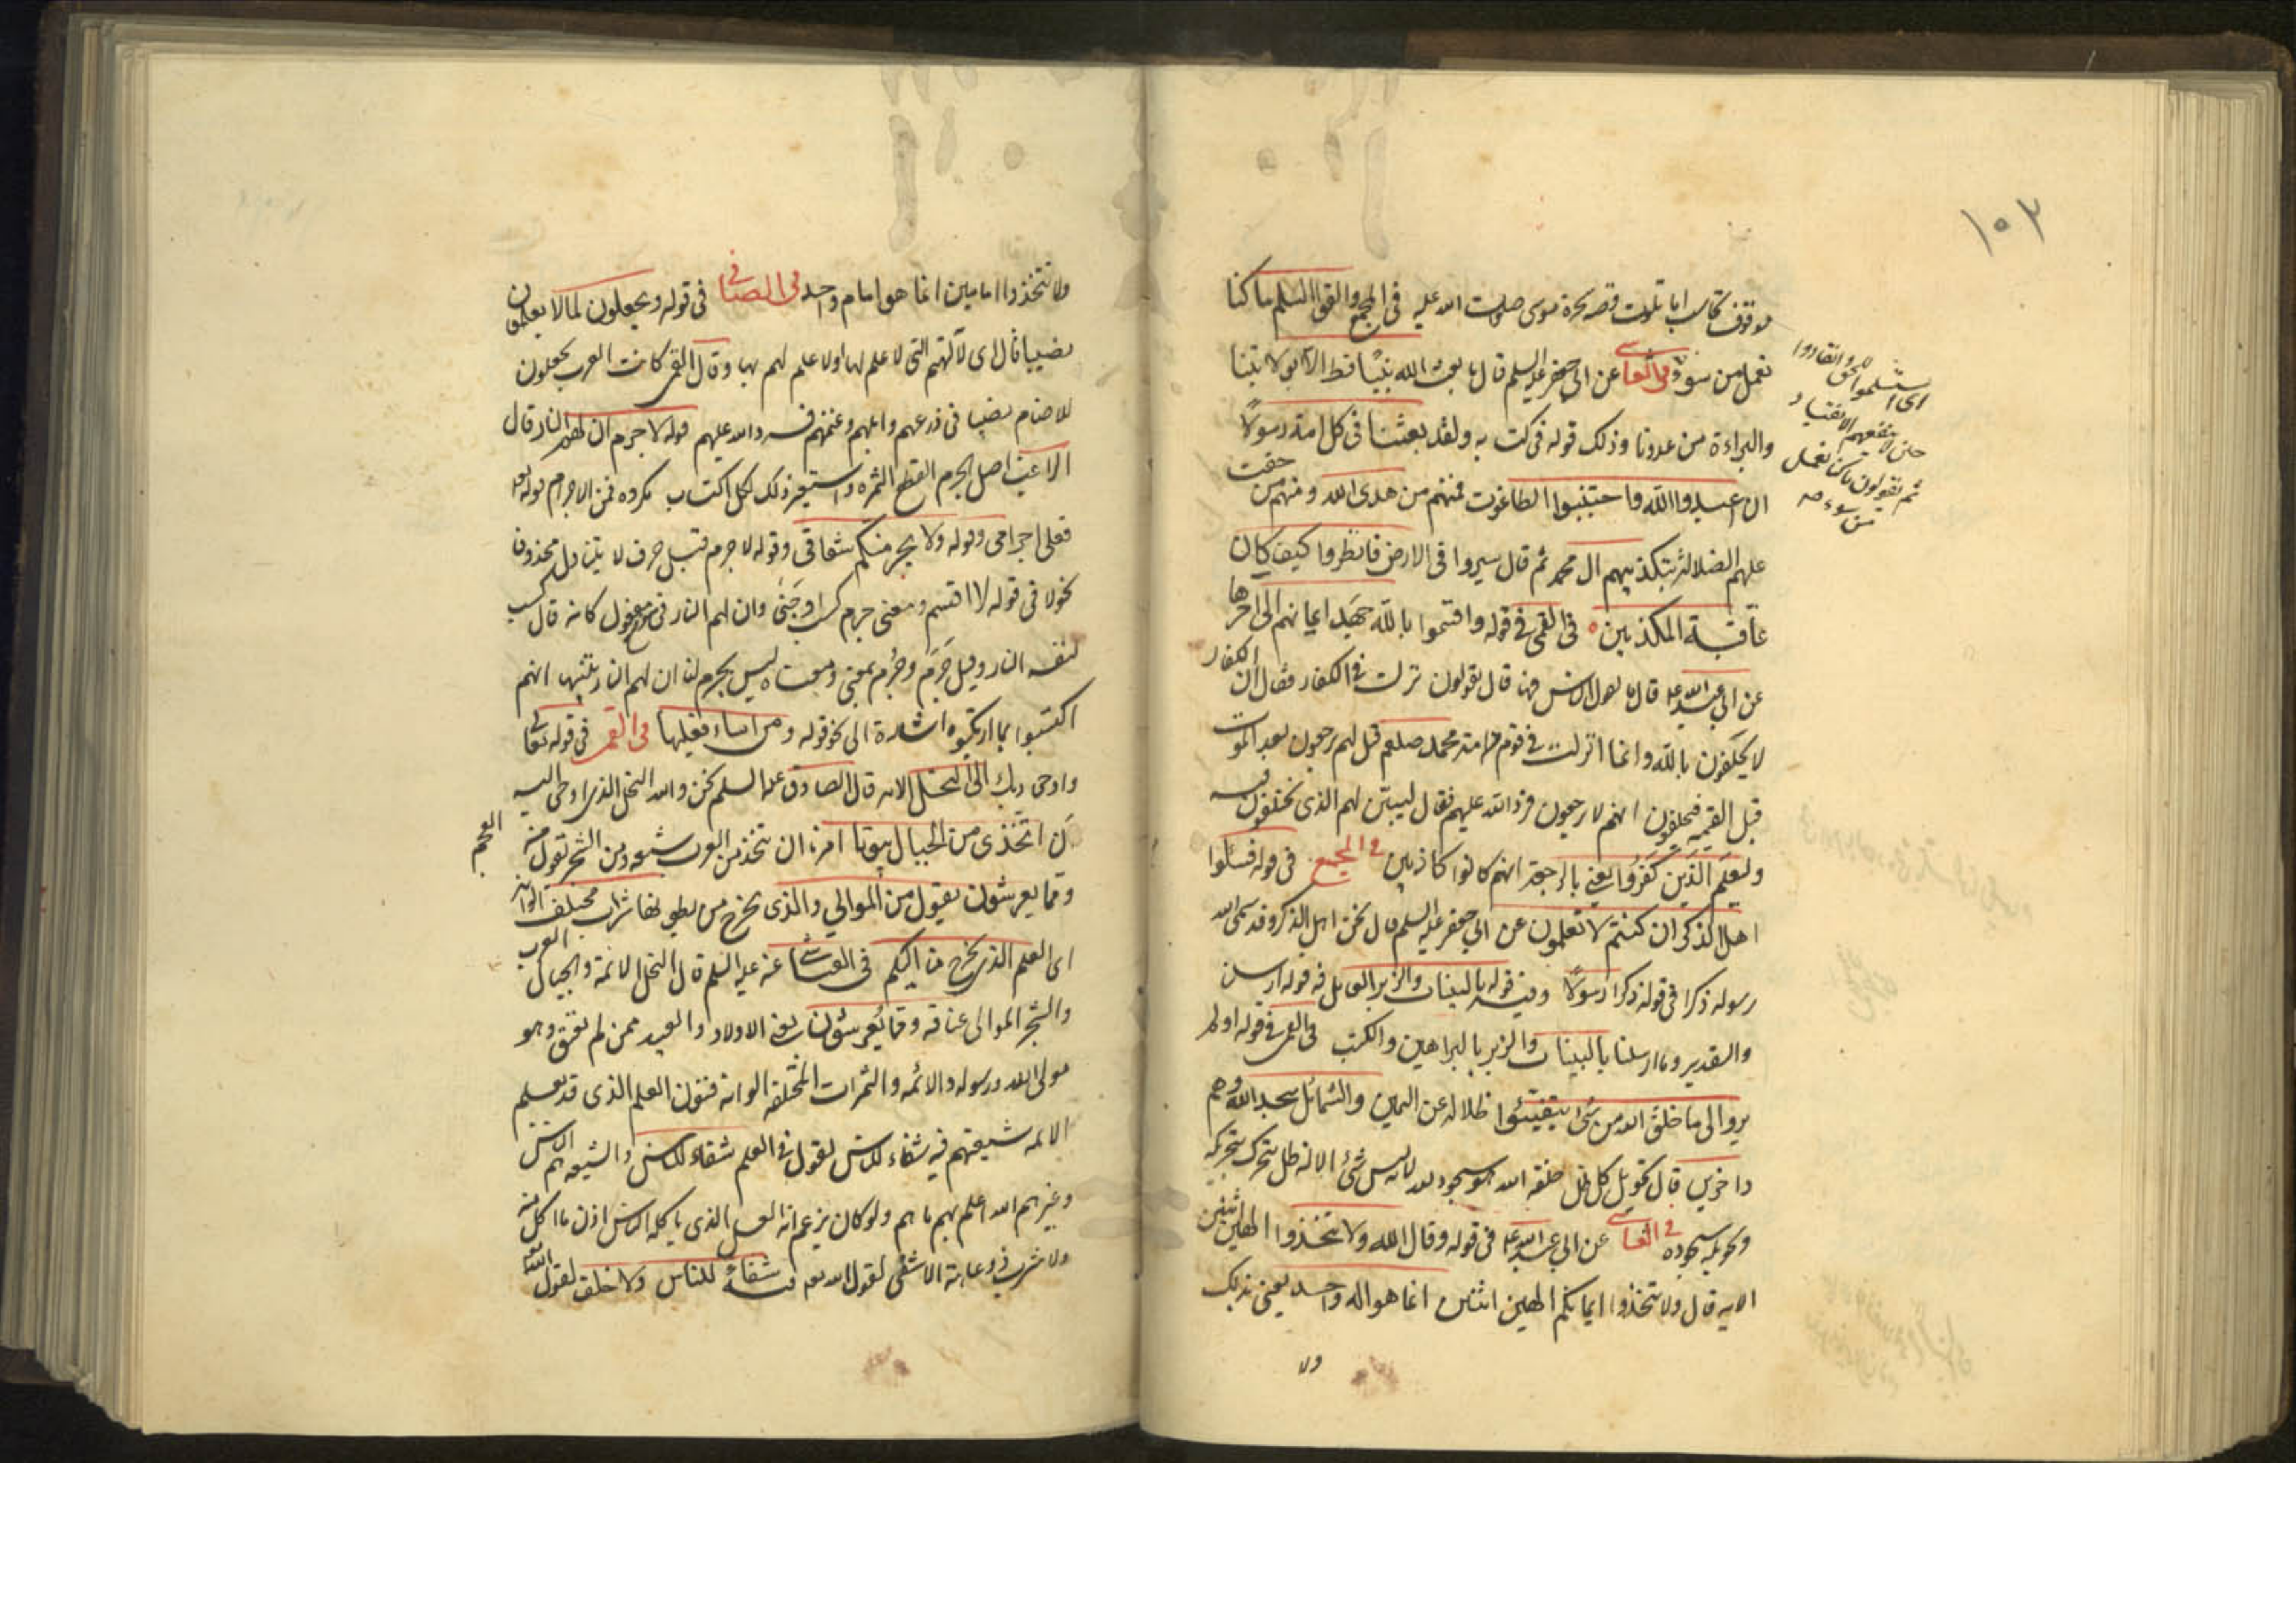 ١٥٣
موقوف كما سبب اما تلوت قصه سحرة موسى صلوت الله عليه فى المجمع والقوا السلم ما كنا
نعمل من سوء فى العياشى عن ابى جعفر عليه السلم قال ما بعث الله نبيًا قط الا بولايتنا
والبراءة من عدونا وذلك قوله فى كتابه ولقد بعثنا فى كل امة رسولًا
ان اعبدوا الله واجتنبوا الطاغوت فمنهم من هدى الله ومنهم من حقت
عليهم الضلالة بتكذيبهم ال محمد ثم قال سيروا فى الارض فانظروا كيف كان
عاقبة المكذبين فى القمى فى قوله واقسموا بالله جهد ايمانهم الى اخرها
عن ابى عبد الله ع قال ما يقول الناس فيها قال يقولون نزلت فى الكفار فقال ان الكفار
لا يحلفون بالله وانما انزلت فى قوم من امة محمد صلعم قيل لهم ترجعون بعد الموت
قبل القيمه فيحلفون انهم لا يرجعون فرد الله عليهم فقال ليبين لهم الذى يختلفون فيه
وليعلم الذين كفروا يعنى بالرجعة انهم كانوا كاذبين فى المجمع فى قوله فسئلوا
اهل الذكر ان كنتم لا تعلمون عن ابى جعفر عليه السلم قال نحن اهل الذكر وقد سمى الله
رسوله ذكرا فى قوله ذكرا رسولًا وفيه قوله بالبينات والزبر العامل فيه قوله ارسلنا
والتقدير وما ارسلنا بالبينات والزبر بالبراهين والكتب فى القمى فى قوله اولم
يروا الى ما خلق الله من شئ يتفيئوا ظلاله عن اليمين والشمائل سجدا لله وهم
داخرين قال تحويل كل ظل خلقه الله هو سجوده لله لانه ليس شئ الا له ظل يتحرك بتحريكه
وتحويله سجوده فى العياشى عن ابى عبد الله ع فى قوله وقال الله ولا تتخذوا الهين اثنين
الايه قال ولا تتخذوا ايمانكم الهين اثنين انما هو اله واحد يعنى بذلك
ولا
اى استسلموا للحق وانقادوا
حين لا ينفعهم الانقياد
ثم يقولون ما كنا نعمل
من سوء منه
ولا تتخذوا امامين انما هو امام واحد فى الصافى فى قوله ويجعلون لما لا يعلمون
نصيبا قال اى لآلهتهم التى لا علم لها او لا علم لهم بها وقال القمى كانت العرب يجعلون
للاصنام نصيبا فى زرعهم وابلهم وغنمهم فرد الله عليهم قوله لا جرم ان لهم النار قال
الراغب اصل الجرم القطع الثمره واستعير ذلك لكل اكتساب مكروه فمن الاجرام قوله تعه
فعلى اجرامى وقوله ولا يجرمنكم شقاقى وقوله لا جرم قيل حرف لا يتناول محذوف
نحو لا فى قوله لا اقسم ومعنى جرم كسب او جنى وان لهم النار فى موضع مفعول كانه قال كسب
لنفسه النار وقيل جَرَم وجُرم بمعنى ومعناه ليس بجرم لنا ان لهم النار تنبيها انهم
اكتسبوا بما ارتكبوه اشارة الى نحو قوله ومن اساء فعليها فى القمى فى قوله تعالى
واوحى ربك الى النحل الايه قال الصادق عليه السلم نحن والله النحل الذى اوحى اليه
ان اتخذى من الجبال بيوتا امرنا ان نتخذ من العرب شيعه ومن الشجر تقول من
العجم
ومما يعرشون يقول من الموالى والذى يخرج من بطونها شراب مختلف الوانه
اى العلم الذى يخرج منا اليكم فى العياشى عنه عليه السلم قال النحل الائمة والجبال العرب
والشجر الموالى عتاقه ومما يعرشون يعنى الاولاد والعبيد ممن لم يعتق وهو
مولى الله ورسوله والائمه والثمرات المختلفه الوانه فنون العلم الذى قد يعلم
الائمه شيعتهم فيه شفاء للناس يقول فى العلم شفاء للناس والشيعه هم الناس
وغيرهم الله اعلم بهم ما هم ولو كان يزعم انه العسل الذى ياكله الناس اذن ما اكل منه
ولا شرب ذو عاهة الا شفى لقول الله تعه فيه شفاء للناس ولا خلف لقول الله